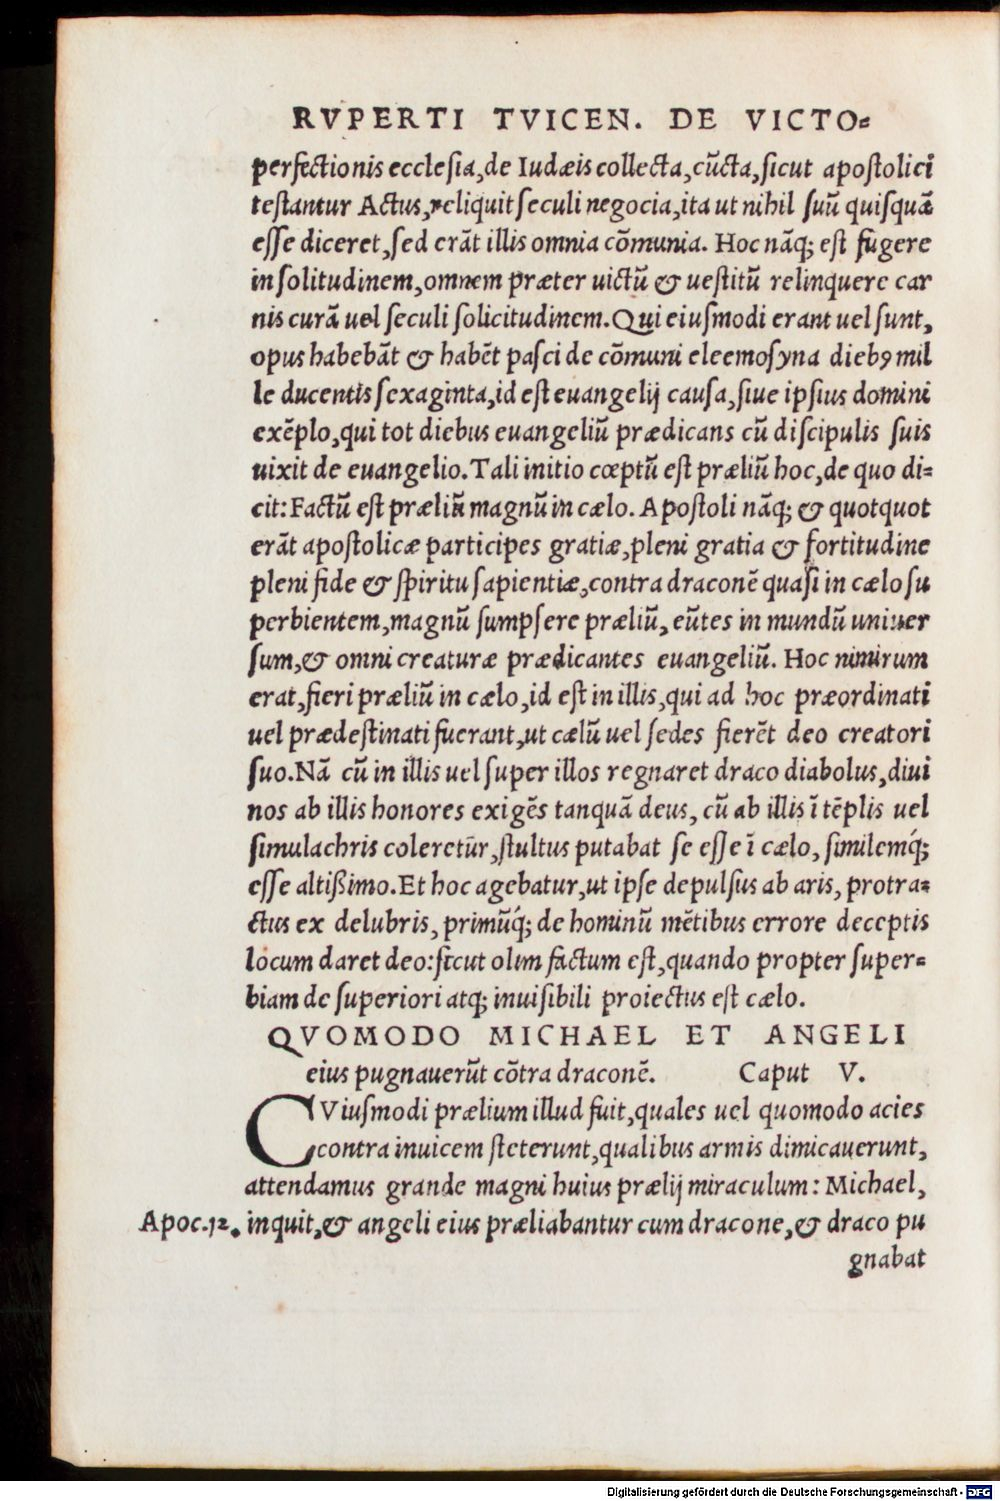 RVPERTI TVICEN. DE VICTO-
perfectionis ecclesia, de Iudæis collecta, cũcta, sicut apostolici
testantur Actus, reliquit seculi negocia, ita ut nihil suũ quisquã
esse diceret, sed erãt illis omnia cõmunia. Hoc nãq; est fugere
in solitudinem, omnem præter uictũ & uestitũ relinquere car
nis curã uel seculi solicitudinem. Qui eiusmodi erant uel sunt,
opus habebãt & habẽt pasci de cõmuni eleemosyna dieb9 mil
le ducentis sexaginta, id est euangelij causa, siue ipsius domini
exẽplo, qui tot diebus euangeliũ prædicans cũ discipulis suis
uixit de euangelio. Tali initio cœptũ est præliũ hoc, de quo di-
cit: Factũ est præliũ magnũ in cælo. Apostoli nãq; & quotquot
erãt apostolicæ participes gratiæ, pleni gratia & fortitudine
pleni fide & spiritu sapientiæ, contra draconẽ quasi in cælo su
perbientem, magnũ sumpsere præliũ, eũtes in mundũ uniuer
sum, & omni creaturæ prædicantes euangeliũ. Hoc nimirum
erat, fieri præliũ in cælo, id est in illis, qui ad hoc præordinati
uel prædestinati fuerant, ut cælũ uel sedes fierẽt deo creatori
suo. Nã cũ in illis uel super illos regnaret draco diabolus, diui
nos ab illis honores exigẽs tanquã deus, cũ ab illis ĩ tẽplis uel
simulachris coleretur, stultus putabat se esse ĩ cælo, similemq́;
esse altißimo. Et hoc agebatur, ut ipse depulsus ab aris, protra-
ctus ex delubris, primũq́; de hominũ mẽtibus errore deceptis
locum daret deo: sicut olim factum est, quando propter super-
biam de superiori atq; inuisibili proiectus est cælo.
QVOMODO MICHAEL ET ANGELI
eius pugnauerũt cõtra draconẽ. Caput V.
CVíusmodi prælium illud fuit, quales uel quomodo acies
contra inuicem steterunt, qualibus armis dimicauerunt,
attendamus grande magni huius prælij miraculum: Michael,
Apoc.12. inquit, & angeli eius præliabantur cum dracone, & draco pu
gnabat
Digitalisierung gefördert durch die Deutsche Forschungsgemeinschaft - DFG